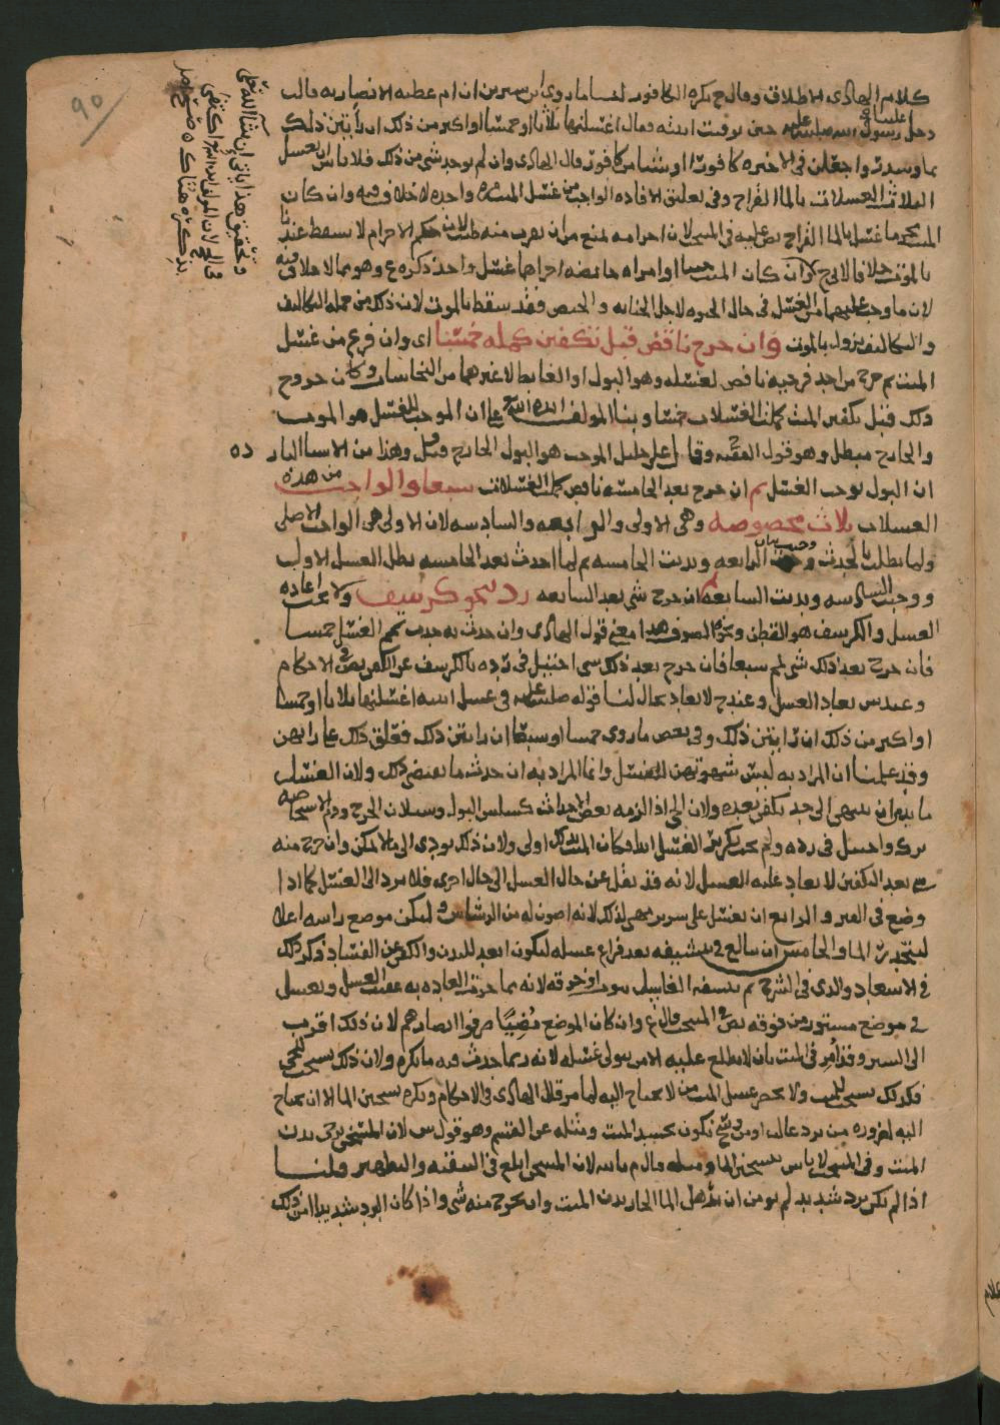 كلام الهادي الاطلاق وقال ح يكره الكافور لنا ما روي ابن سيرين ان ام عطيه الانصاريه قالت
دخل علينا رسول الله صلى الله عليه حين توفيت ابنته فقال اغسلنها ثلاثا او خمسا او اكثر من ذلك ان رأيتن ذلك
بما وسدر واجعلن في الاخره كافورا او شيئا من كافور قال الهادي وان لم يوجد شي من ذلك فلا باس ان يغسل
الثلاث الغسلات بالما القراح وفي تعليق الافاده الواجب من غسل الميت مره واحده لا خلاف فيه وان كان
الميت محرما غسل بالما القراح نص عليه في المنتخب لان احرامه يمنع من ان يقرب منه طيب لان حكم الاحرام لا يسقط عندنا
بالموت خلافا لابي ح وان كان الميت جنبا او امراه حائضه اجزاهما غسل واحد ذكره ع وهو مما لا خلاف فيه
لان ما وجب عليهما من الغسل في حال الحيوه لاجل الجنابه والحيض فقد سقط بالموت لان ذلك من جمله التكاليف
والتكاليف تزول بالموت وان خرج ناقض قبل تكفين كمله خمسا اي وان فرغ من غسل
الميت ثم خرج من احد فرجيه ناقض لغسله وهو البول او الغايط لا غيرهما من النجاسات وكان خروج
ذلك قبل تكفين الميت كملت الغسلات خمسا وبنا المولف ايده الله على ان الموجب للغسل هو الموت
والخارج مبطل وهو قول الفقيه ح وقال علي خليل الموجب هو البول الخارج قبل وهذا من الاسباب النادره
ان البول يوجب الغسل ثم ان خرج بعد الخامسه ناقض كملت الغسلات سبعا والواجب من هذه
الغسلات ثلاث مخصوصه وهي الاولى والرابعه والسادسه لان الاولى هي الواجب الاصلي
ولما بطلت بالحدث وجبت الرابعه وندبت الخامسه ثم لما احدث بعد الخامسه بطل الغسل الاول
ووجبت السادسه وندبت السابعه ثم ان خرج شي بعد السابعه رد بنحو كرسف ولا يجب اعاده
الغسل والكرسف هو القطن ونحوه الصوف هذا معنى قول الهادي وان حدث به حدث تمم الغسل خمسا
فان خرج بعد ذلك شي تمم سبعا فان خرج بعد ذلك شي احتيل في رده بالكرسف عن الكفن نص في الاحكام
وعند ش يعاد الغسل وعند ح لا يعاد بحال لنا قوله صلى الله عليه في غسل ابنته اغسلنها ثلاثا او خمسا
او اكثر من ذلك ان رايتن ذلك وفي بعض ما روي خمسا او سبعا ان رايتن ذلك فعلق ذلك على رايهن
وقد علمنا ان المراد به ليس شهوتهن للغسل وانما المراد به ان حدث ما يقتضي ذلك ولان الغسل
ما بد من ان ينتهي الى حد يكفي بعده ولان الحي اذا لزمه بعض الاحداث كسلس البول وسيلان الجرح ودم الاستحاضه
ترك واحتيل في رده ولم يجب تكرير الغسل ابدا فكان الميت بذلك اولى ولان ذلك يودي الى ما لا يمكن وان خرج منه
شي بعد التكفين لا يعاد عليه الغسل لانه قد نقل عن حال الغسل الى حال اخرى فلا يرد الى الغسل كما اذا
وضع في القبر والرابع ان يغسل على سرير يهي لذلك لانه اصون له من الرشاش وليكن موضع راسه اعلا
لينحدر الما والخامس ان يبالغ في تنشيفه بعد فراغ غسله ليكون ابعد للدرن والكفن عن الفساد ذكر ذلك
في الاسعاد والذي في الشرح ثم ينشفه الغاسل بثوب او خرقه لانه مما جرت العاده به عقيب الغسل ويغسل
في موضع مستور من فوقه نص في المنتخب قال ع وان كان الموضع مُضِيًّا صرفوا ابصارهم لان ذلك اقرب
الى الستر وقد أُمر في الميت بان لا يطلع عليه الا من يتولى غسله لانه ربما حدث فيه ما يكره ولان ذلك يستحب للحي
فكذلك يستحب للميت ولا يحضر غسل الميت من لا يحتاج اليه لما مر قال الهادي في الاحكام ويكره تسخين الما الا ان يحتاج
اليه لضروره من برد غالب او من وسخ يكون بجسد الميت ومثله عن القسم وهو قول ش لان المسخن يرخي بدن
الميت وفي المنتخب لا باس بتسخين الما ومثله قال م بالله لان المسخن ابلغ في التنقيه والتطهير قلنا
اذا لم يكن برد شديد لم يومن ان يذهل الما الحار بدن الميت وان يخرج منه شي واذا كان البرد شديدا امن ذلك
وتحقيق هذا ياتي ان شا الله تعالى
في الحج لان المولف ايده الله اكتفى
بذكره هناك
٩٥